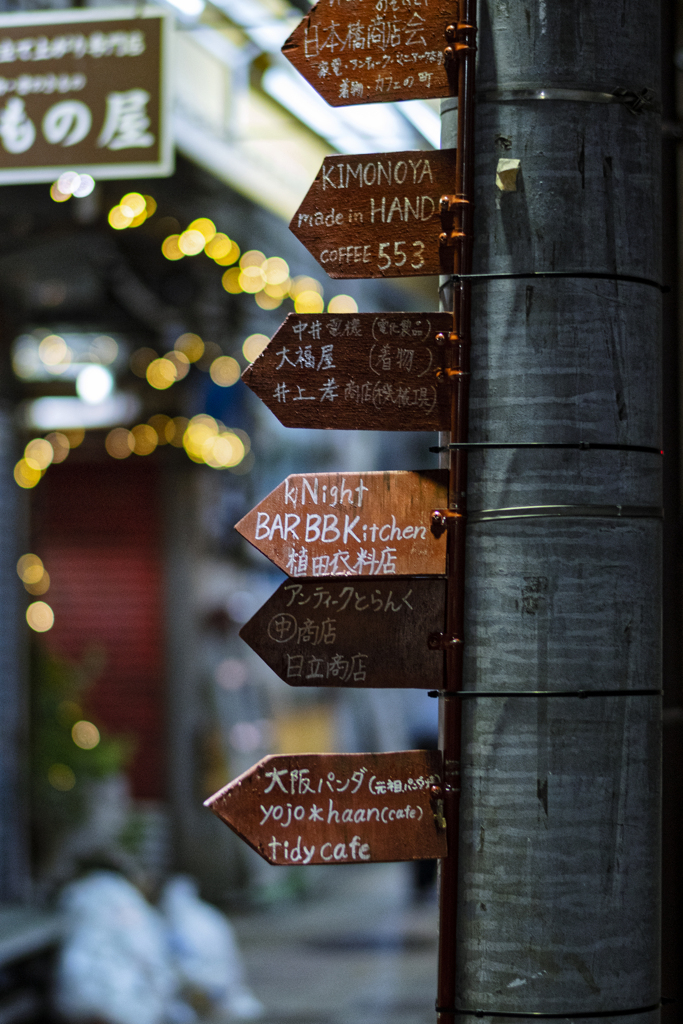 もの屋
日本橋商店会
着物・カフェの町
KIMONOYA
made in HAND
COFFEE 553
中井電機（電化製品）
大福屋（着物）
井上孝商店（機械工具）
kNight
BAR BBKitchen
植田衣料店
アンティークとらんく
㊥商店
日立商店
大阪パンダ（元祖パンダヤ
yojo*haan(cafe)
tidy cafe